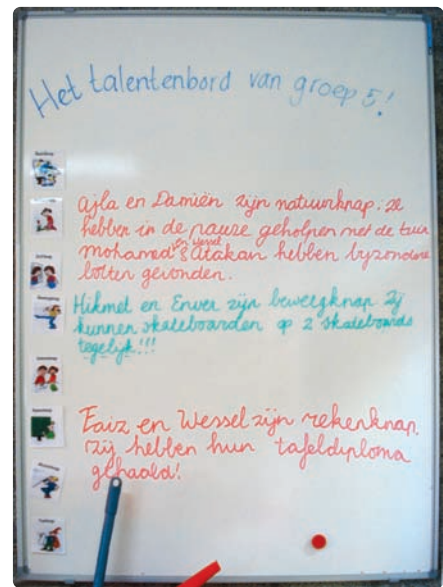 Het talentenbord van groep 5!
Ajla en Damiën zijn natuurknap. ze
hebben in de pauze geholpen met de tuin
en Wessel
mohamed & Atakan hebben byzondere
hebben gevonden.
Hikmet en Enver zijn beweegknap Zij
kunnen skateboarden op 2 skateboards
tegelijk!!!
Faiz en Wessel zijn rekenknap.
zij hebben hun tafeldiploma
gehaald!